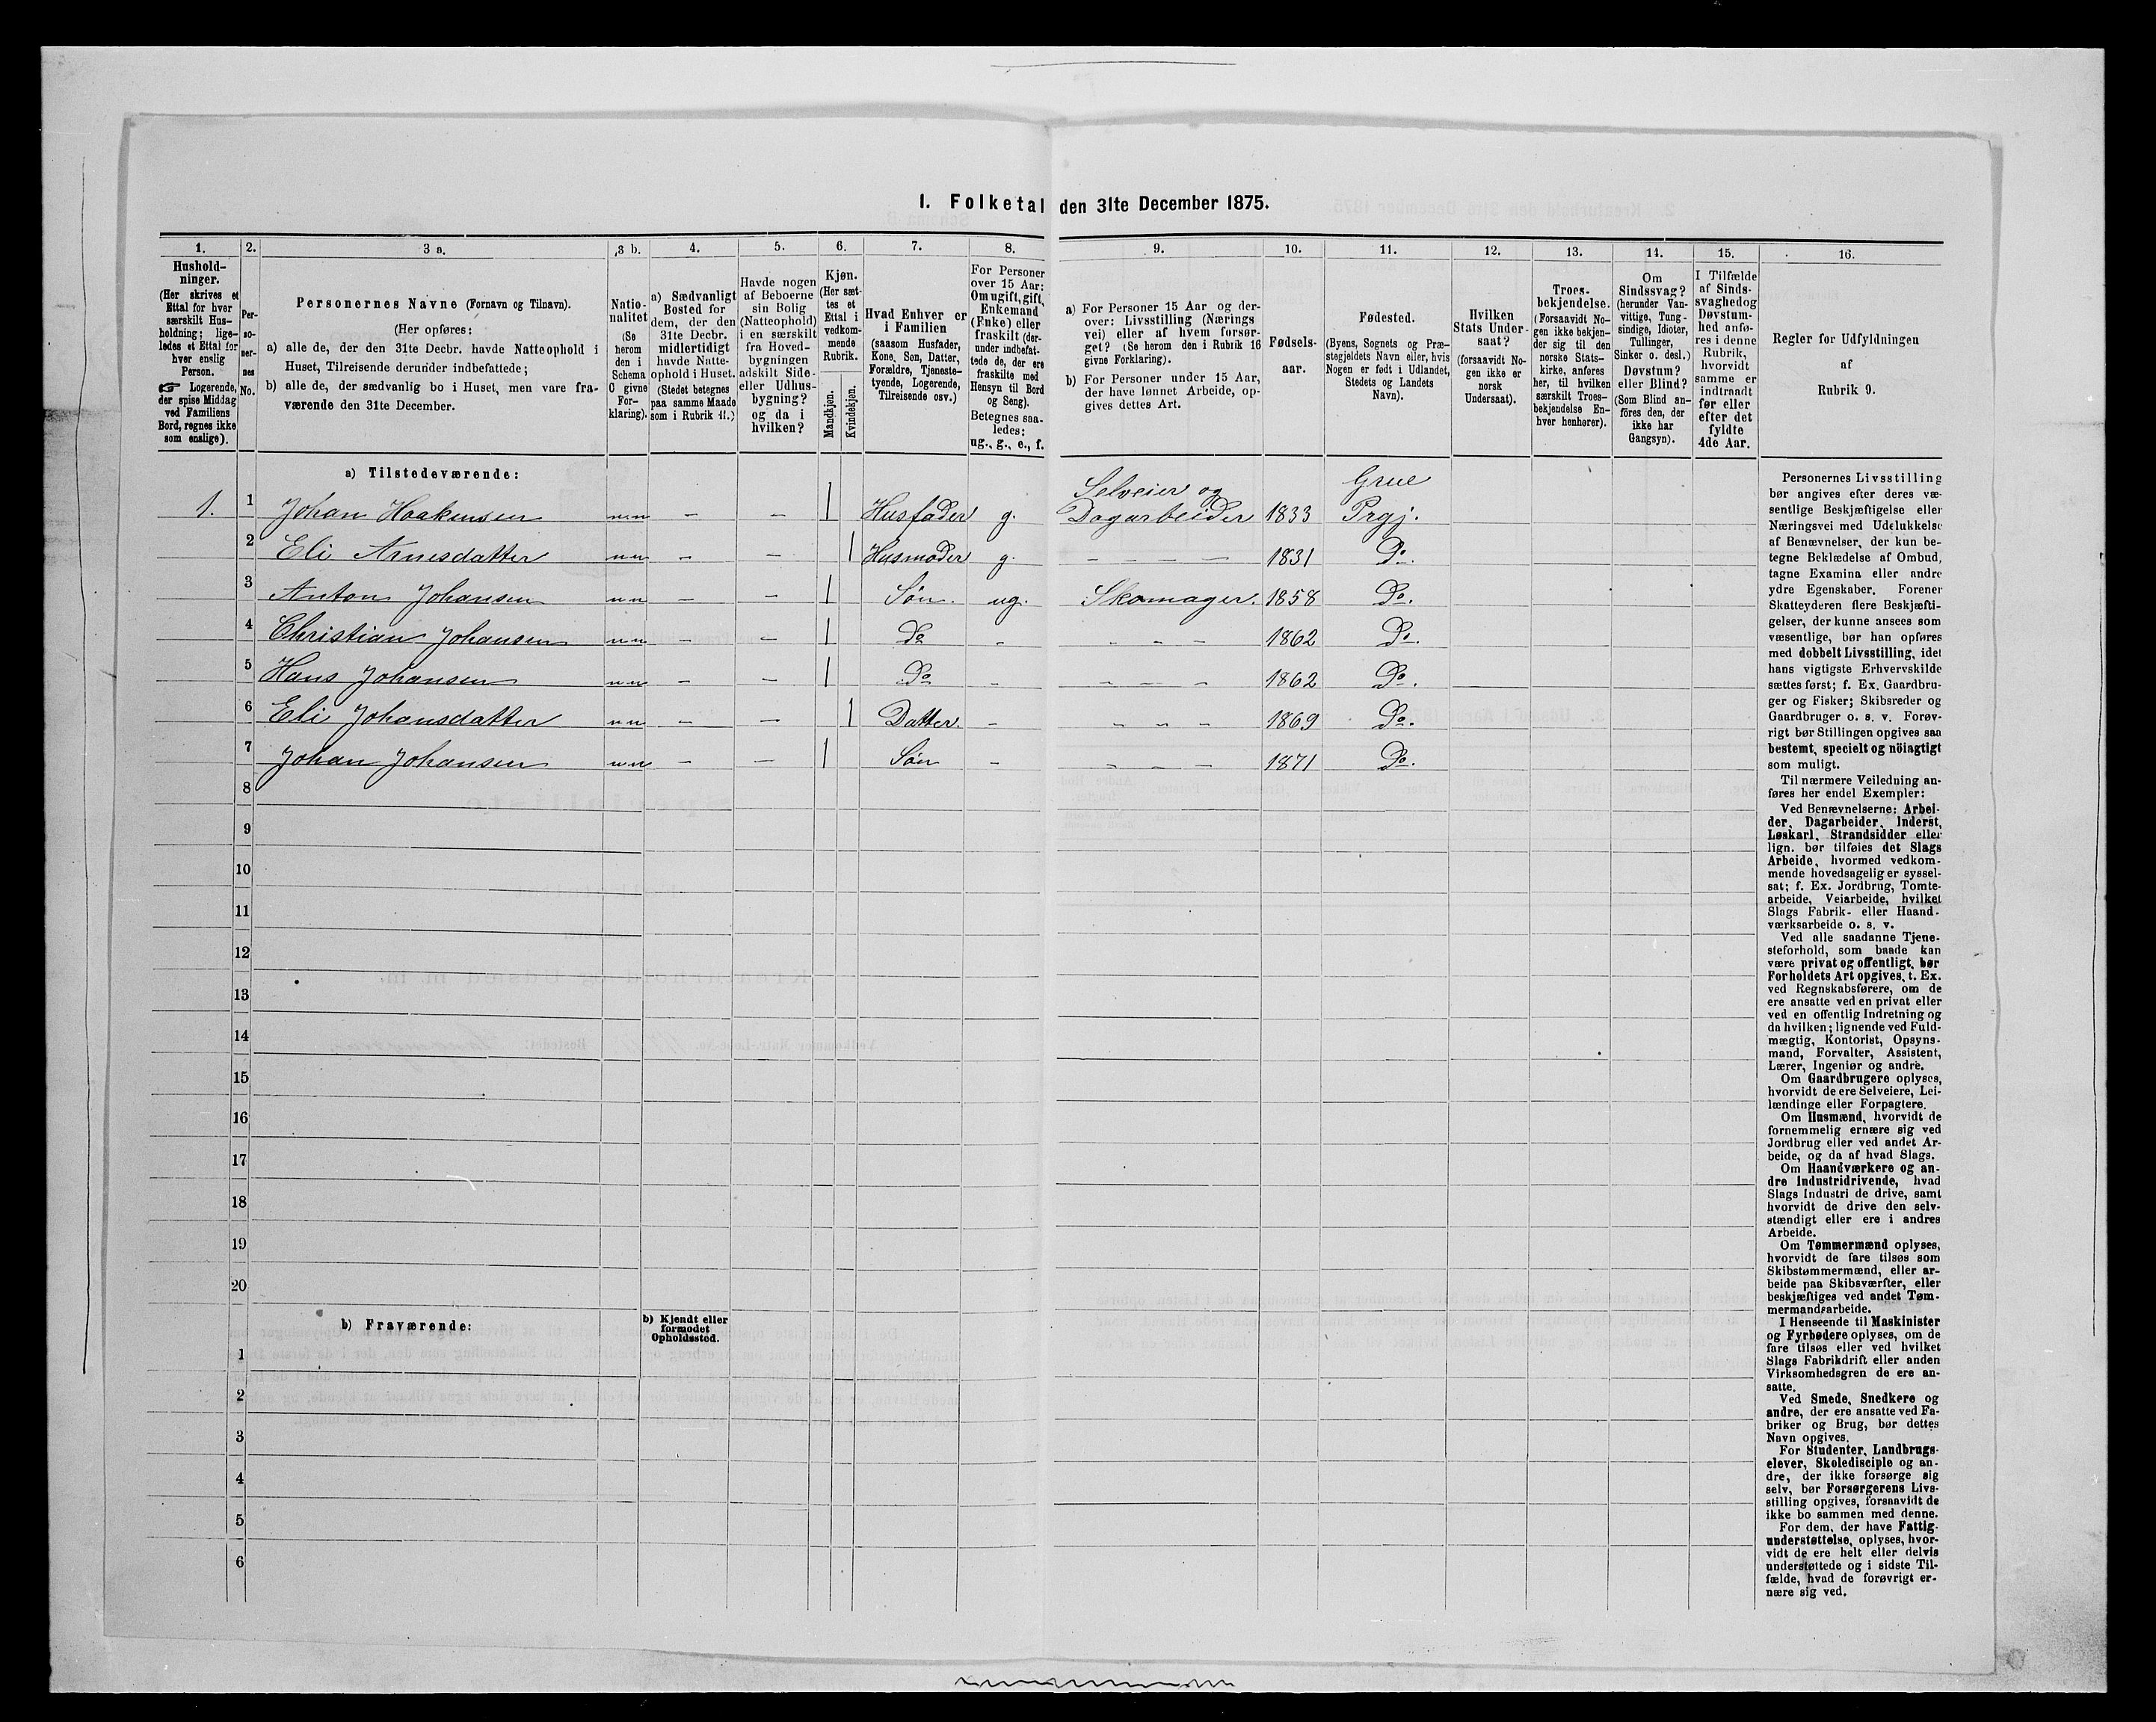 1. Folketal den 31te December 1875.
1. 2. 3 a. 3 b. 4. 5. 6. 7. 8. 9. 10. 11. 12. 13. 14. 15. 16.
Hushold-
ninger.
(Her skrives et
Ettal for hver
særskilt Hus-
holdning; lige-
ledes et Ettal for
hver enslig
Person.
☞ Logerende,
der spise Middag
ved Familiens
Bord, regnes ikke
som enslige).
Per-
so-
ner-
nes
No.
Personernes Navne (Fornavn og Tilnavn).
(Her opføres:
a) alle de, der den 31te Decbr. havde Natteophold i
Huset, Tilreisende derunder indbefattede;
b) alle de, der sædvanlig bo i Huset, men vare fra-
værende den 31te December.
Natio-
nalitet
(Se
herom
den i
Schema
O givne
For-
klaring).
a) Sædvanligt
Bosted for
dem, der den
31te Decbr.
midlertidigt
havde Natte-
ophold i Huset.
(Stedet betegnes
paa samme Maade
som i Rubrik 11.)
Havde nogen
af Beboerne
sin Bolig
(Natteophold)
i en særskilt
fra Hoved-
bygningen
adskilt Side-
eller Udhus-
bygning?
og da i
hvilken?
Kjøn.
(Her sæt-
tes et
Ettal i
vedkom-
mende
Rubrik.
Mandkjøn.
Kvindekjøn.
Hvad Enhver er
i Familien
(saasom Husfader,
Kone, Søn, Datter,
Forældre, Tjeneste-
tyende, Logerende,
Tilreisende osv.)
For Personer
over 15 Aar:
Om ugift, gift,
Enkemand
(Enke) eller
fraskilt (der-
under indbefat-
tede de, der ere
fraskilte med
Hensyn til Bord
og Seng).
Betegnes saa-
ledes:
ug., g., e., f.
a) For Personer 15 Aar og der-
over: Livsstilling (Nærings
vei) eller af hvem forsør-
get? (Se herom den i Rubrik 16
givne Forklaring).
b) For Personer under 15 Aar,
der have lønnet Arbeide, op-
gives dettes Art.
Fødsels-
aar.
Fødested.
(Byens, Sognets og Præ-
stegjeldets Navn eller, hvis
Nogen er født i Udlandet,
Stedets og Landets
Navn).
Hvilken
Stats Under-
saat?
(forsaavidt No-
gen ikke er
norsk
Undersaat).
Troes-
bekjendelse.
(Forsaavidt No-
gen ikke bekjen-
der sig til den
norske Stats-
kirke, anføres
her, til hvilken
særskilt Troes-
bekjendelse En-
hver henhører).
Om
Sindssvag?
(herunder Van-
vittige, Tung-
sindige, Idioter,
Tullinger,
Sinker o. desl.)
Døvstum?
eller Blind?
(Som Blind an-
föres den, der
ikke har
Gangsyn).
I Tilfælde
af Sinds-
svaghed og
Døvstum-
hed anfø-
res i denne
Rubrik,
hvorvidt
samme er
indtraadt
før eller
efter det
fyldte
4de Aar.
Regler for Udfyldningen
af
Rubrik 9.
a) Tilstedeværende:
Selveier og Grue
1. 1 Johan Haakensen nn – – 1 Husfader g. Dagarbeider 1833 Prgj.
2 Eli Arnesdatter nn – – 1 Husmoder g. – – – – 1831 Do.
3 Anton Johansen nn – – 1 Søn. ug. Skomager. 1858 Do.
4 Christian Johansen nn – – 1 do – – – – 1862 Do.
5 Hans Johansen nn – – 1 Do – – – – 1862 Do.
6 Eli Johansdatter nn – – 1 Datter. – – – – 1869 Do.
7 Johan Johansen nn – – 1 Søn – – – – 1871 Do.
8
9
10
11
12
13
14
15
16
17
18
19
20
b) Fraværende:
b) Kjendt eller
formodet
Opholdssted.
1
2
3
4
5
6
Personernes Livsstilling
bør angives efter deres væ-
sentlige Beskjæftigelse eller
Næringsvei med Udelukkelse
af Benævnelser, der kun be-
tegne Beklædelse af Ombud,
tagne Examina eller andre
ydre Egenskaber. Forener
Skatteyderen flere Beskjæfti-
gelser, der kunne ansees som
væsentlige, bør han opføres
med dobbelt Livsstilling, idet
hans vigtigste Erhvervskilde
sættes først; f. Ex. Gaardbru-
ger og Fisker; Skibsreder og
Gaardbruger o. s. v. Forøv-
rigt bør Stillingen opgives saa
bestemt, specielt og nöiagtigt
som muligt.
Til nærmere Veiledning an-
føres her endel Exempler:
Ved Benævnelserne: Arbei-
der, Dagarbeider, Inderst,
Løskarl, Strandsidder eller
lign. bør tilføies det Slags
Arbeide, hvormed vedkom-
mende hovedsagelig er syssel-
sat; f. Ex. Jordbrug, Tomte-
arbeide, Veiarbeide, hvilket
Slags Fabrik- eller Haand-
værksarbeide o. s. v.
Ved alle saadanne Tjene-
steforhold, som baade kan
være privat og offentligt, bør
Forholdets Art opgives, t. Ex.
ved Regnskabsførere, om de
ere ansatte ved en privat eller
ved en offentlig Indretning og
da hvilken; lignende ved Fuld-
mægtig, Kontorist, Opsyns-
mand, Forvalter, Assistent,
Lærer, Ingeniør og andre.
Om Gaardbrugere oplyses,
hvorvidt de ere Selveiere, Lei-
lændinge eller Forpagtere.
Om Husmænd, hvorvidt de
fornemmelig ernære sig ved
Jordbrug eller ved andet Ar-
beide, og da af hvad Slags.
Om Haandværkere og an-
dre Industridrivende, hvad
Slags Industri de drive, samt
hvorvidt de drive den selv-
stændigt eller ere i andres
Arbeide.
Om Tømmermænd oplyses,
hvorvidt de fare tilsøs som
Skibstømmermænd, eller ar-
beide paa Skibsværfter, eller
beskjæftiges ved andet Tøm-
mermandsarbeide.
I Henseende til Maskinister
og Fyrbødere oplyses, om de
fare tilsøs eller ved hvilket
Slags Fabrikdrift eller anden
Virksomhedsgren de ere an-
satte.
Ved Smede, Snedkere og
andre, der ere ansatte ved Fa-
briker og Brug, bør dettes
Navn opgives.
For Studenter, Landbrugs-
elever, Skoledisciple og an-
dre, der ikke forsørge sig
selv, bør Forsørgerens Livs-
stilling opgives, forsaavidt de
ikke bo sammen med denne.
For dem, der have Fattig-
understøttelse, oplyses, hvor-
vidt de ere helt eller delvis
understøttede og i sidste Til-
fælde, hvad de forøvrigt er-
nære sig ved.